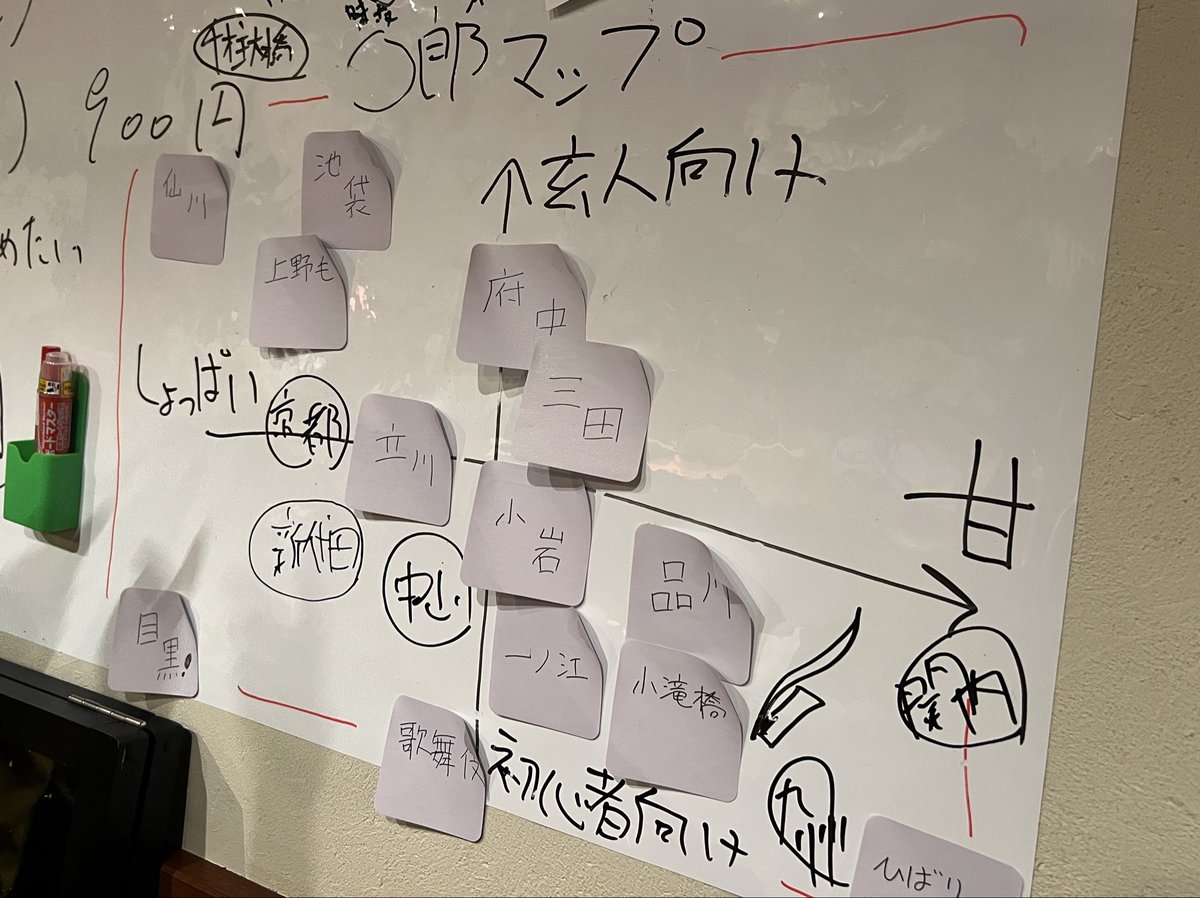 〇郎マップ
900円
↑玄人向け
仙川
池袋
上野毛
府中
めたい
三田
しょっぱい
京都
立川
甘
ードマスター
小岩
新代田
中山
品川
目黒
一ノ江
小滝橋
関内
歌舞伎
初心者向け
九州
ひばり